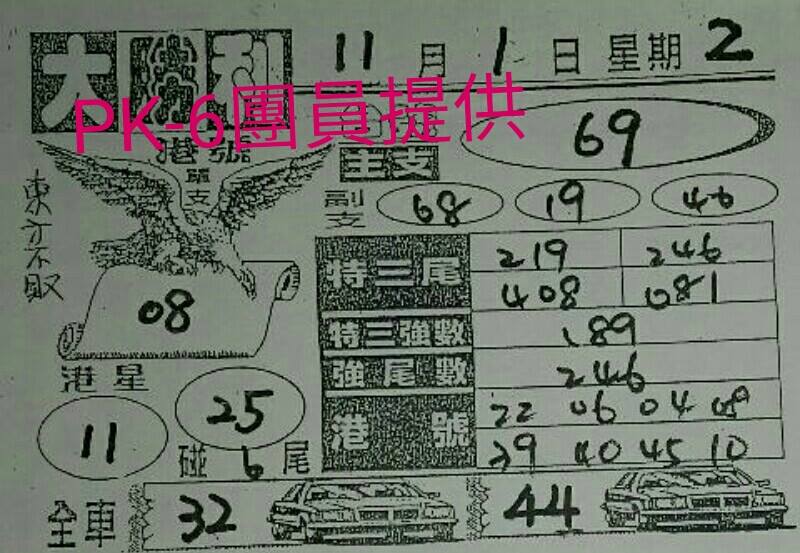 大勝利 11月1日星期2
PK-6團員提供
69
港號
單支
主支
副支 68 19 46
東方不敗
08
特三尾 219 246
408 081
特三強數 189
強尾數 246
港星
11 25
碰6尾
港號 22 06 04 09
39 40 45 10
全車 32 44